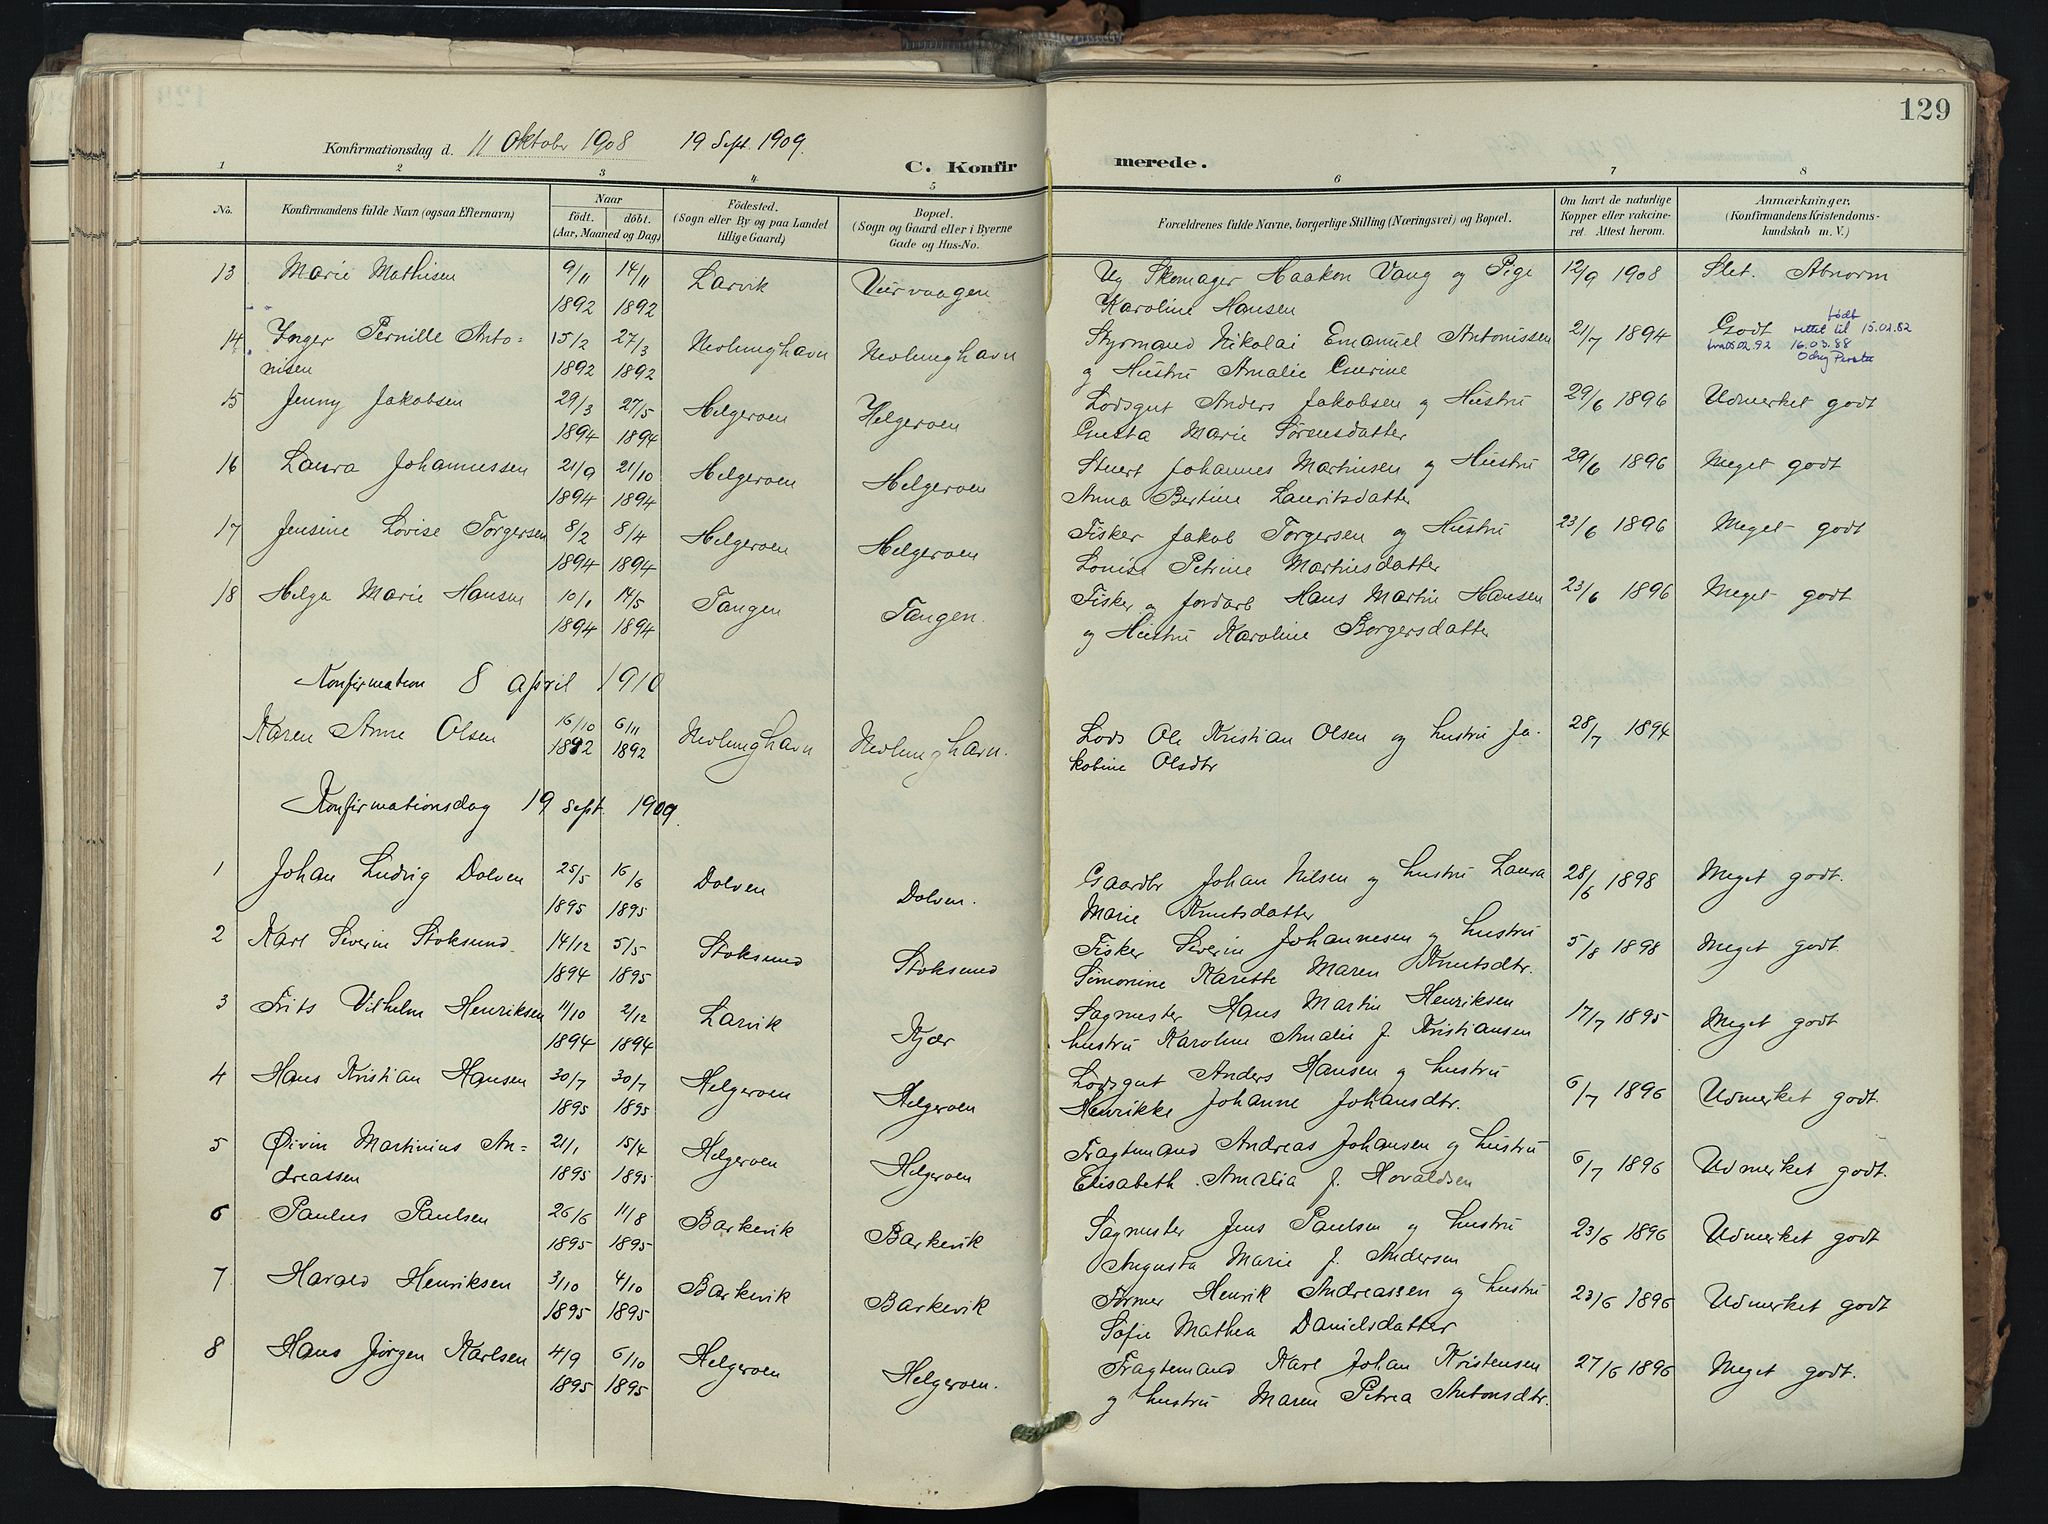 129
Konfirmationsdag d. 11 Oktober 1908 19 Sept. 1909.
C. Konfirmerede.
1 2 3 4 5 6 7 8
No.
Konfirmandens fulde Navn (ogsaa Efternavn)
Naar
födt. döbt.
(Aar, Maaned og Dag)
Födested.
(Sogn eller By og paa Landet
tillige Gaard)
Bopæl.
(Sogn og Gaard eller i Byerne
Gade og Hus-No.
Forældrenes fulde Navne, borgerlige Stilling (Næringsvei) og Bopæl.
Om havt de naturlige
Kopper eller vakcine-
ret. Attest herom.
Anmærkninger,
(Konfirmandens Kristendoms-
kundskab m. V.)
13 Marie Mathisen 9/11 14/11 Larvik Veirvaagen Ug Skomager Haakon Vang og Pige 12/9 1908 Slet. Abnorm
1892 1892 Karoline Hansen
14 Inger Pernille Anto- 15/2 27/3 Nevlunghavn Nevlunghavn Styrmand Nikolai Emanuel Antonissen 21/7 1894 Godt født
rettet til 15.02.82
16.03.88
nisen 1892 1892 og Hustru Amalie
15 Jenny Jakobsen 29/3 27/5 Helgeroen Helgeroen Lodsgut Anders Jakobsen og Hustru 29/6 1896 Udmerket godt
1894 1894 Gusta Marie Sørensdatter
16 Laura Johannessen 21/9 21/10 Helgeroen Helgeroen Stuert Johannes Martinsen og Hustru 29/6 1896 Meget godt
1894 1894 Anna Bertine Lauritsdatter
17 Jensine Lovise Torgersen 8/2 8/4 Helgeroen Helgeroen Fisker Jakob Torgersen og Hustru 23/6 1896 Meget godt
1894 1894 Lovise Petrine Martinsdatter
18 Helga Marie Hansen 10/1 14/5 Tangen Tangen. Fisker og Jordarb Hans Martin Hansen 23/6 1896 Meget godt
1894 1894 og Hustru Karoline Borgersdatter
Konfirmation 8 april 1910
Karen Anne Olsen 16/10 6/11 Nevlunghavn Nevlunghavn. Lods Ole Kristian Olsen og hustru Ja- 28/7 1894
1892 1892 kobine Olsdtr
Konfirmationsdag 19 sept. 1909.
1 Johan Ludvig Dolven 25/5 16/6 Dolven Dolven. Gaardbr Johan Nilsen og hustru Laura 28/6 1898 Meget godt.
1895 1895 Marie Knutsdatter
2 Karl Severin Stoksund 14/12 5/5 Stoksund Stoksund Fisker Severin Johannesen og hustru 5/8 1898 Meget godt
1894 1895 Simonine Karette Maren Knutsdtr.
3 Frits Vilhelm Henriksen 11/10 2/12 Larvik Kjær Sagmester Hans Martin Henriksen 17/7 1895 Meget godt
1894 1894 hustru Karoline Amalie f. Kristiansen
4 Hans Kristian Hansen 30/7 30/7 Helgeroen Helgeroen Lodsgut Anders Hansen og hustru 6/7 1896 Udmerket godt.
1895 1895 Henrikke Johanne Johansdtr.
5 Øivin Martinius An- 21/1 15/4 Helgeroen Helgeroen Fragtemand Andreas Johansen og hustru 6/7 1896 Udmerket godt.
dreassen 1895 1895 Elisabeth Amalia f. Hovaldsen
6 Paulus Paulsen 26/6 11/8 Barkevik Barkevik Sagmester Jens Paulsen og hustru 23/6 1896 Udmerket godt
1895 1895 Augusta Marie f. Andersen
7 Harald Henriksen 3/10 4/10 Barkevik Barkevik Former Henrik Andreassen og hustru 23/6 1896 Udmerket godt
1895 1895 Sofie Mathea Danielsdatter
8 Hans Jørgen Karlsen 4/9 6/10 Helgeroen Helgeroen. Fragtemand Karl Johan Kristensen 27/6 1896 Meget godt.
1895 1895 og hustru Maren Petrea Antonsdtr.